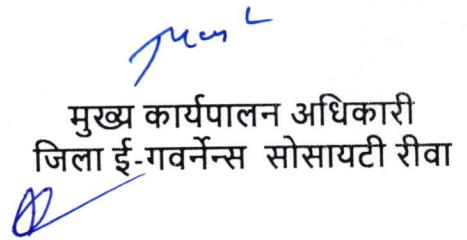 मुख्य कार्यपालन अधिकारी
जिला ई-गवर्नेन्स सोसायटी रीवा